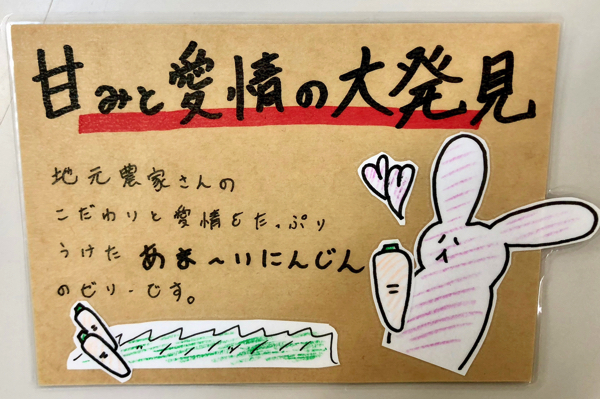 甘みと愛情の大発見
地元農家さんの
こだわりと愛情をたっぷり
うけた あま〜いにんじん
のゼリーです。